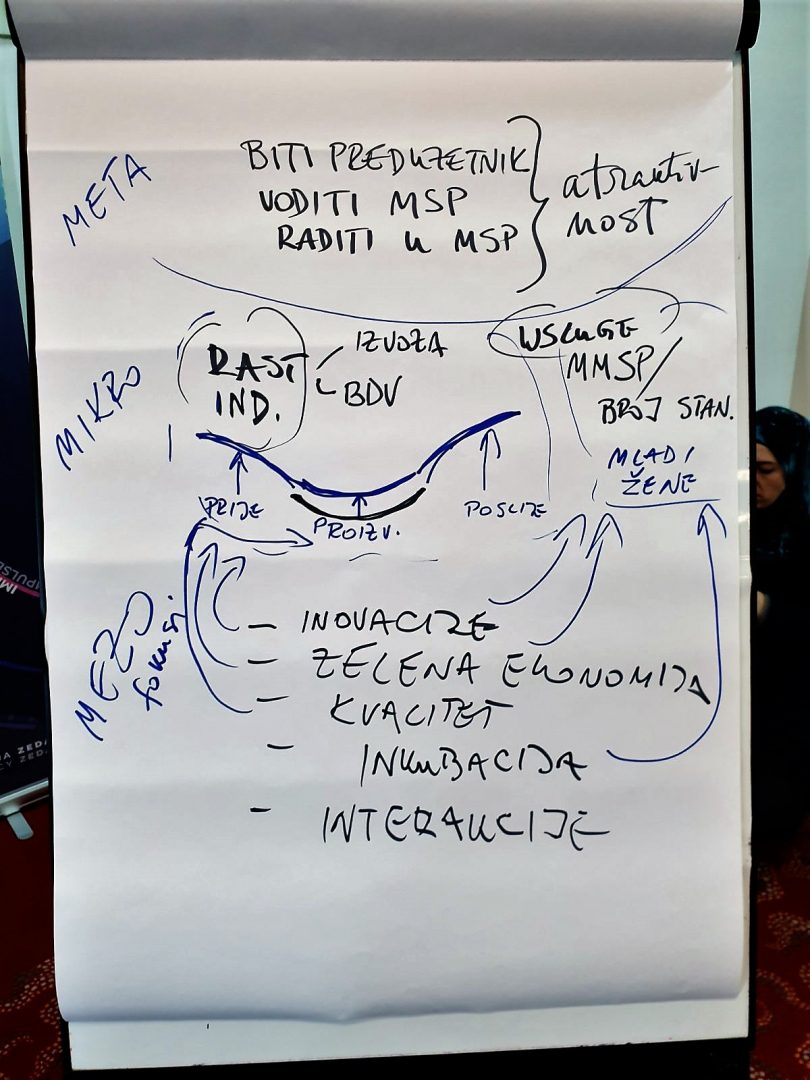 META
BITI PREDUZETNIK
VODITI MSP
RADITI U MSP
atraktiv-
nost
MIKRO
RAST
IND.
IZVOZA
BDV
USLUGE
MMSP/
BROJ STAN.
MLADI
ŽENE
PRIJE
PROIZV.
POSLIJE
MEZO
fokusi.
- INOVACIJE
- ZELENA EKONOMIJA
- KVALITET
- INKUBACIJA
- INTERAKCIJE